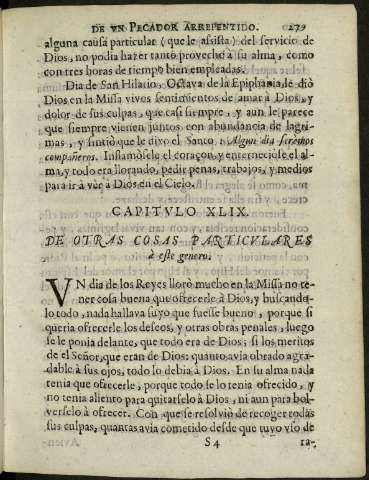 DE VN PECADOR ARREPENTIDO. 279
alguna causa particular (que le assista) del servicio de
Dios, no podia hazer tanto provecho à su alma, como
con tres horas de tiempo bien empleadas.
Dia de San Hilario, Octava de la Epiphania, le diò
Dios en la Missa vivos sentimientos de amar à Dios, y
dolor de sus culpas, que casi siempre, y aun le parece
que siempre vienen juntos con abundancia de lagri-
mas, y sintiò que le dixo el Santo: Algun dia serèmos
compañeros. Inflamòsele el coraçon, y enterneciòse el al-
ma, y todo era llorando, pedir penas, trabajos, y medios
para ir à vèr à Dios en el Cielo.
CAPITVLO XLIX.
DE OTRAS COSAS PARTICVLARES
à este genero.
VN dia de los Reyes llorò mucho en la Missa no te-
ner cosa buena que ofrecerle à Dios, y buscando-
lo todo, nada hallava suyo que fuesse bueno, porque si
queria ofrecerle los deseos, y otras obras penales, luego
se le ponia delante, que todo era de Dios; si los meritos
de el Señor, que eran de Dios: quanto avia obrado agra-
dable à sus ojos, todo lo debia à Dios. En su alma nada
tenia que ofrecerle, porque todo se lo tenia ofrecido, y
no tenia aliento para quitarselo à Dios, ni aun para bol-
verselo à ofrecer. Con que se resolviò de recoger todas
sus culpas, quantas avia cometido desde que tuvo vso de
S 4 ra-